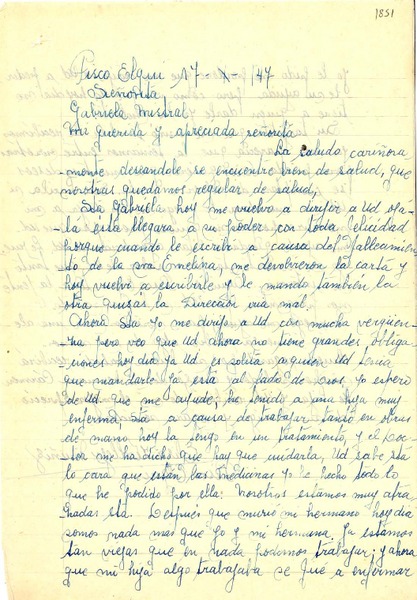 1851
Pisco Elqui, 17 - X - /47
Señorita
Gabriela Mistral
Mi querida y apreciada señorita
La saludo cariñosa
mente deseandole se encuentre bien de salud, que
nosotras quedamos regular de salud,
Sta Gabriela hoy me vuelvo a dirijir a Ud oja-
la esta llegara a su poder con toda felicidad
porque cuando le escribí a causa del fallecimien
to de la sra Emelina, me devolvieron la carta y
hoy vuelvo a escribirle y le mando también la
otra quizas la Dirección iria mal.
Ahora Sta yo me dirijo a Ud con mucha verguen-
za pero veo que Ud ahora no tiene grandes obliga
ciones hoy dia ya Ud es solita a quien Ud tenia
que mandarle ya está al lado de Dios yo espero
de Ud que me ayude, he tenido a una hija muy
enferma, Sta a causa de trabajar tanto en obras
de mano hoy la tengo en un tratamiento, y el Doc-
tor me ha dicho que hay que cuidarla, Ud sabe sta
lo cara que están las medicinas yo he hecho todo lo
que he podido por ella: nosotros estamos muy atra
sadas sta. Después que murió mi hermano hoy dia
somos nada mas que yo y mi hermana. Ya estamos
tan viejas que en nada podemos trabajar; y ahora
que mi hija algo trabajaba se fué a enfermar